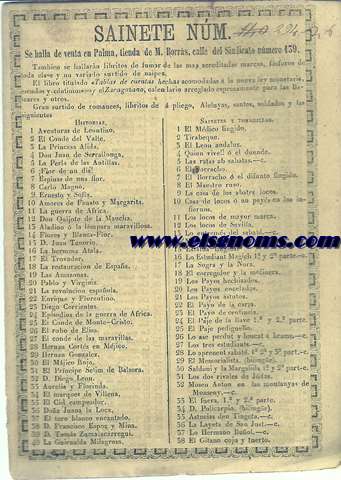 SAINETE NÚM.
Se halla de venta en Palma, tienda de M. Borrás, calle del Sindicato número 139.
Tambien se hallarán libritos de fumar de las mas acreditadas marcas, fósforos de
toda clase y un variado surtido de naipes.
El libro titulado «Tablas de cuentas hechas acomodadas á la nueva ley monetaria,
y el Zaragozano, calendario arreglado espresamente para las Ba-
leares y otros.
Gran surtido de romances, libritos de á pliego, Aleluyas, santos, soldados y las
siguientes
HISTORIAS.
1 Aventuras de Lesantino.
2 El Conde del Valle.
3 La Princesa Alida.
4 Don Juan de Serrallonga.
5 La Perla de las Antillas.
6 ¡Flor de un dia!
7 Espinas de una flor.
8 Carlo Magno.
9 Ernesto y Sofia.
10 Amores de Fausto y Margarita.
11 La guerra de Africa.
12 Don Quijote de la Mancha.
13 Aladino ó la lámpara maravillosa.
14 Flores y Blanca-Flor.
15 D. Juan Tenorio.
16 La hermosa Atala.
17 El Trovador.
18 La restauracion de España.
19 Las Amazonas.
20 Pablo y Virginia.
21 La revolucion española.
22 Enrique y Florentino.
23 Diego Corrientes.
24 Episodios de la guerra de Africa.
25 El Conde de Monte-Cristo.
26 El robo de Elso.
27 El conde de las maravillas.
28 Hernan Cortés en Méjico.
29 Hernan Gonzalez.
30 El Májico Rojo.
31 El Príncipe Selim de Balsora.
32 D. Diego Leon.
33 Aurelia y Florinda.
34 El marques de Villena.
35 El Cid campeador.
36 Doña Juana la Loca.
37 El toro blanco encantado.
38 D. Francisco Espoz y Mina.
39 D. Tomás Zumalacarregui.
La Guirnalda Milagrosa.
SAINETES Y
1 El Médico fingido.
2 Tirabeque.
3 El Leon andaluz.
4 Quien vive!! ó el duende.
5 Las ratas ab sabatas.—c.
6 El Borracho.
7 El Borracho ó el difunto fingido.
8 El Maestro raso.
9 La casa de los abatre locos.
10 Casa de locos ó un payés en los in-
fiernos.
11 Los locos de mayor marca.
12 Los locos de Sevilla.
www.elsenoms.com
16 Lo Estudiant Magich 1.ª y 2.ª part.-c.
17 La Sogra y la Nora.
18 El corregidor y la molinera.
19 Los Payos hechizados.
20 Los Payos
21 Los Payos astutos.
22 El Payo de la carta.
23 El Payo de centinela.
24 El Paje de la llave 1.ª y 2.ª parte.
25 El Paje pedigüeño.
26 Lo ase perdut y buscat á brams.—c.
27 Los tres estudiants.—c.
28 Lo presonè sabatè. 1.ª 2.ª y 3.ª part.-c.
29 El Memorialista. (bilingüe).
30 Saldoni y la Margarida 1.ª y 2.ª part-c.
31 Los dos rivales de Júdas.
32 Mosen Anton en las montanyas de
Monseny.—c.
33 El Faera, 1.ª y 2.ª parte.
34 D. Policarpio, (bilingüe).
35 Astucias den Tinyeta.—c.
36 La Layeta de San Just.—c.
37 Lo Hermano Buñol.—c.
38 El Gitano coja y tuerto.